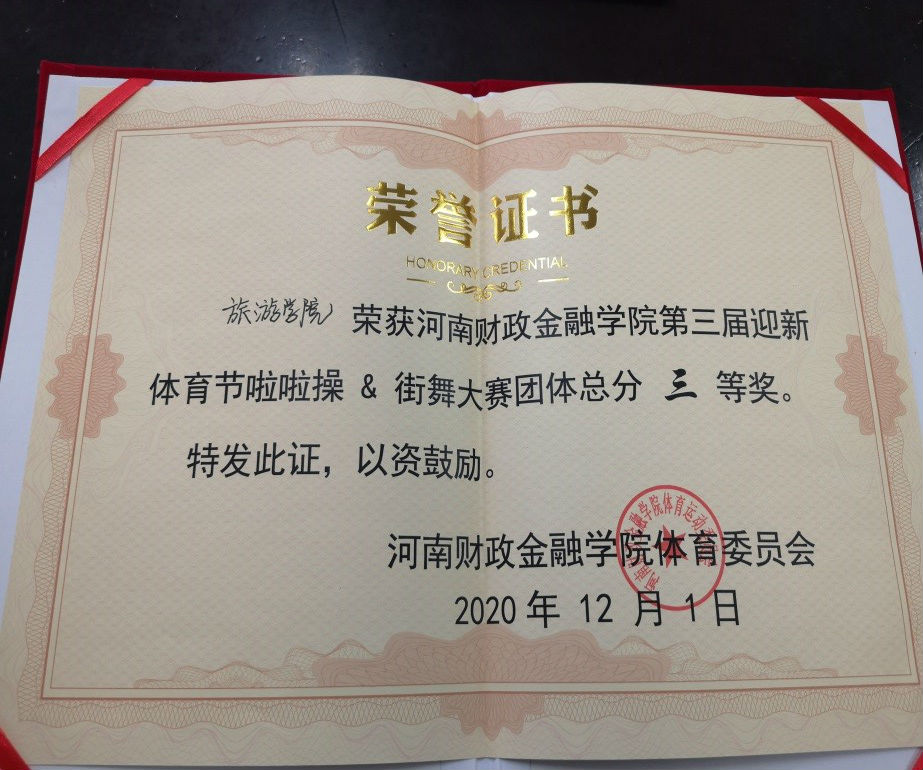 荣誉证书
HONORARY CREDENTIAL
旅游学院 荣获河南财政金融学院第三届迎新
体育节啦啦操 & 街舞大赛团体总分 三 等奖。
特发此证，以资鼓励。
河南财政金融学院体育委员会
2020 年 12 月 1 日